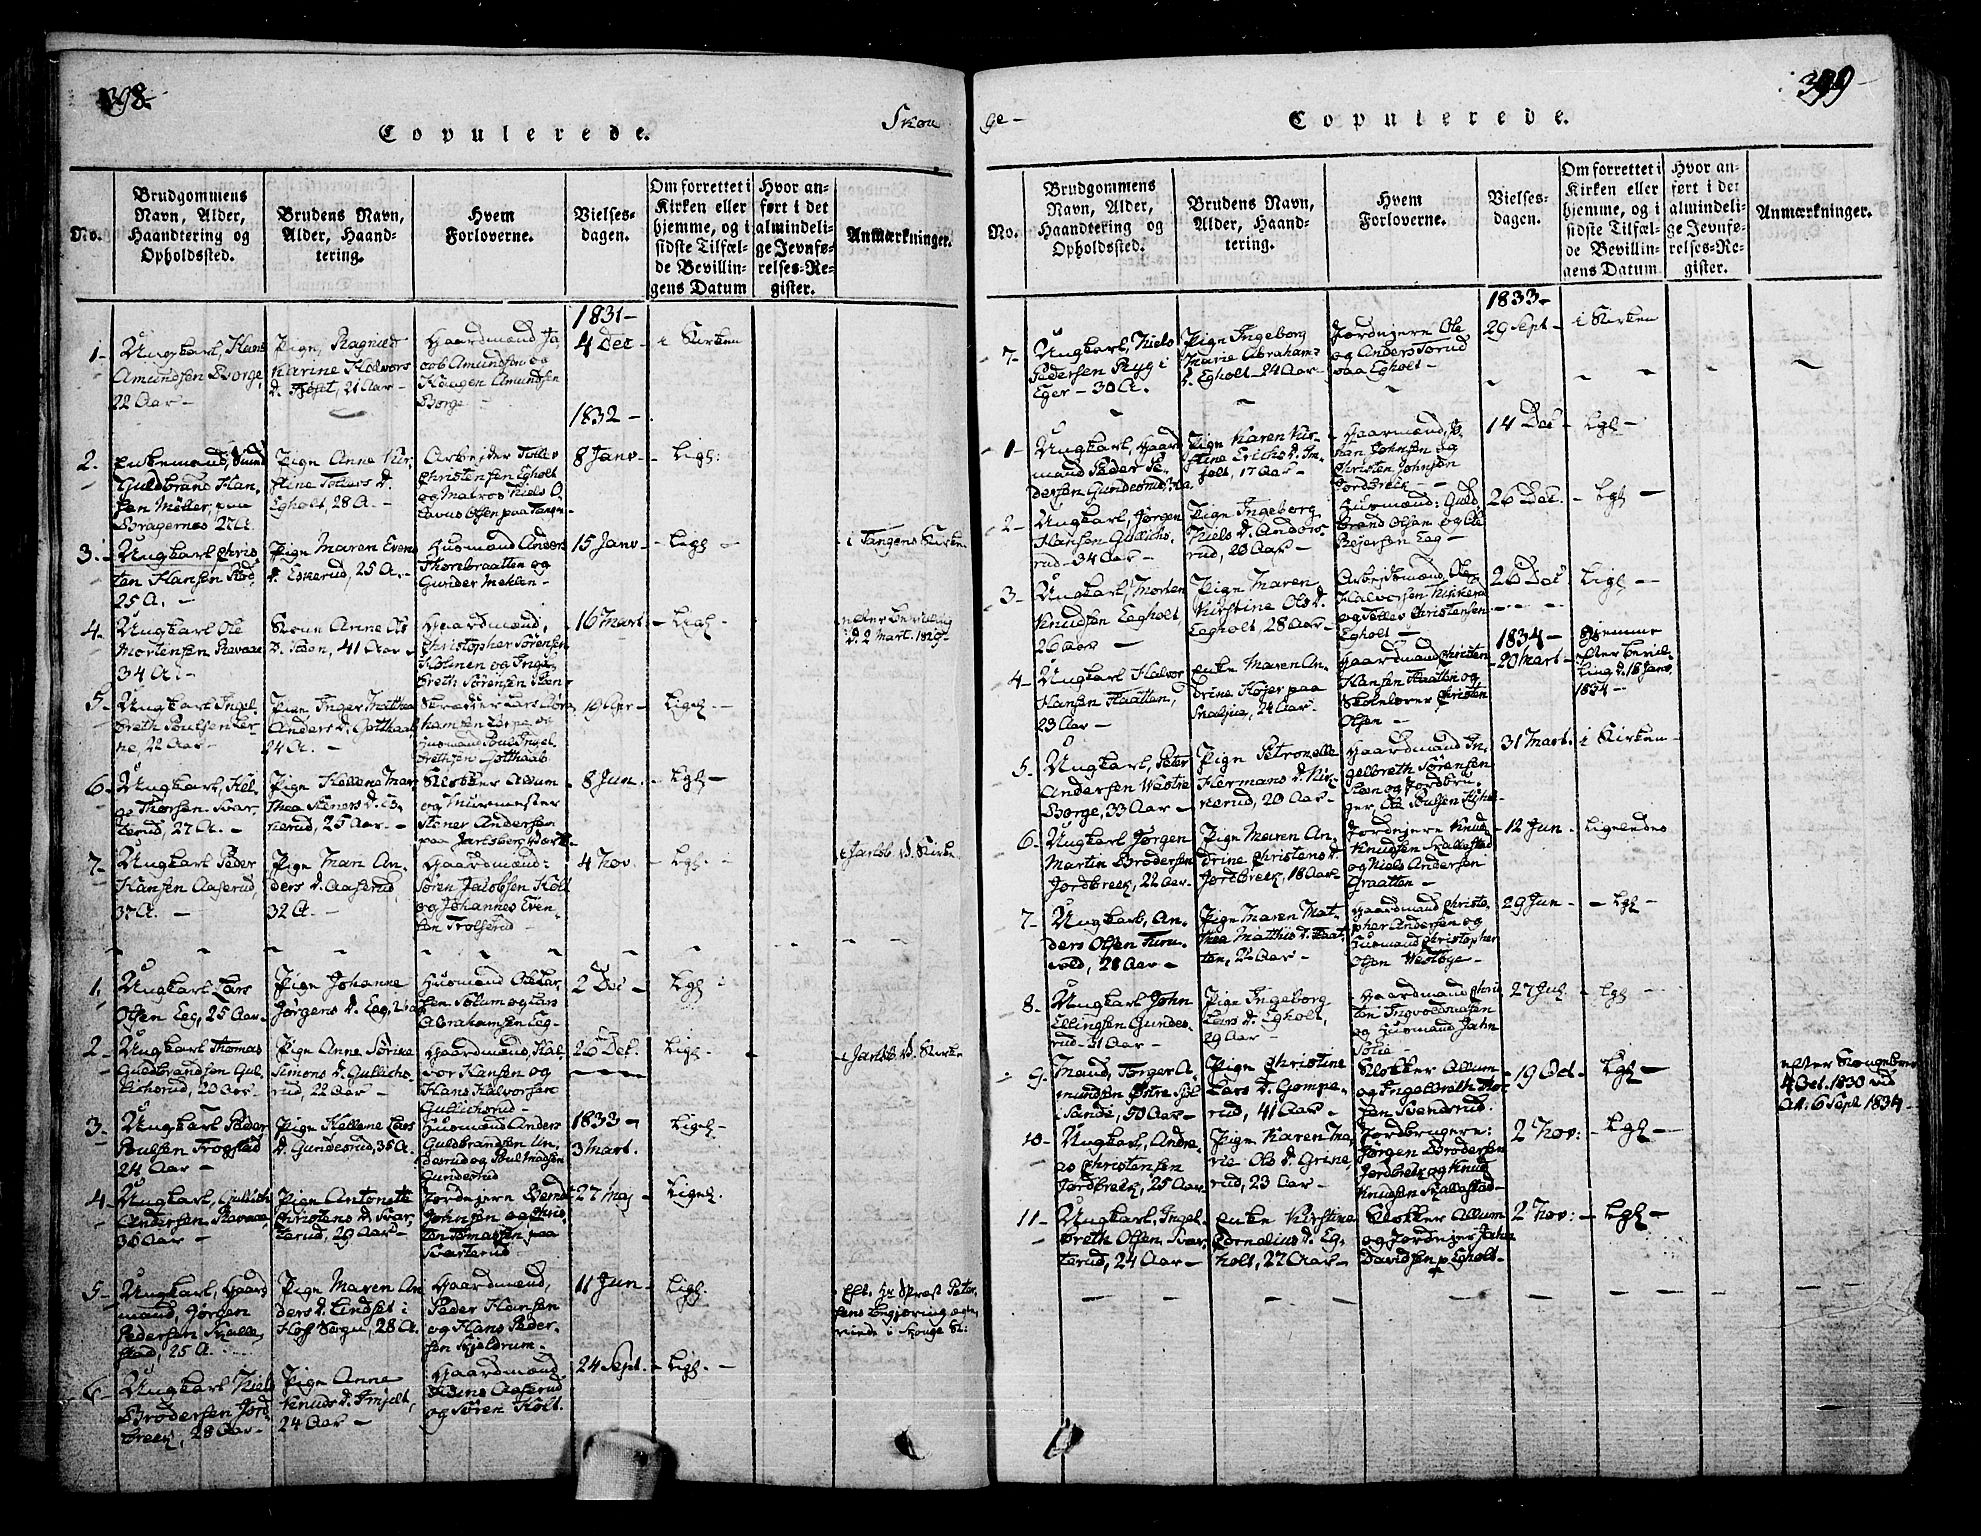 398.
Copulerede.
Skou
No.
Brudgommens
Navn, Alder,
Haandtering og
Opholdssted.
Brudens Navn,
Alder, Haand-
tering.
Hvem
Forloverne.
Vielses-
dagen.
Om forrettet i
Kirken eller
hjemme, og i
sidste Tilfæl-
de Bevillin-
gens Datum
Hvor an-
ført i det
almindeli-
ge Jevnfø-
relses-Re-
gister.
Anmærkninger.
1831-
1-
Ungkarl, Hans
Amundsen Borge,
22 Aar-
Pige, Ragnild
Karine Halvors
d. 21 Aar-
Gaardmænd Ja
cob Amundsen og
Amundsen
Borge-
4 Dec-
i Kirken
1832-
2.
Enkemand,
Guldbrand Han-
sen Møller, paa
Bragernes 27 A.
Pige Anne Kir-
stine Tollevs d.
Egholt, 28 A.-
Arbejder Tollev
Christensen Egholt
og Matros Niels O
lavus Olsen paa Tangen-
8 Janv-
Ligl:
3.
Ungkarl Chris-
ten Hansen
25 A.-
Pige Maren Evens
d. Eskerud, 25 A.-
Husmænd Anders
Thorebraatten og
Gunder
15 Janv-
Ligl-
i Tangens Kirke
4-
Ungkarl Ole
Mortensen Revaae
34 A.-
Anne Ols
d. 41 Aar-
Gaardmænd,
Christopher Sørensen
Holmen og Inge-
breth Sørensen
16 Mart-
Ligl-
efter Bevilling
d. 2 Mart.
5-
Ungkarl Ingel-
breth Poulsen
22 Aar-
Pige Inger Mathea
Anders d. Gotthaab,
24 A.-
Skrædder Lars
og
Husmand Poul Ingel-
brethsen Gotthaab
Ligel-
6-
Ungkarl, Hel-
ge Thorsen Svar-
terud, 27 A.-
Pige Hellene Mar
thea Steners d. Es-
kerud, 25 Aar-
Klokker Allum
og Muurmester
Stener Andersen
paa Jarlsberg Værk-
8 Jun.
Lgl-
7-
Ungkarl Peder
Hansen Aaserud,
37 A.-
Pige Mari An-
ders d. Aaserud,
32 A.-
Gaardmænd:
Søren Jacobsen Holt
og Johannes Even-
sen Trolserud-
4 Nov.
Lgl-
i Jarlsb. V. Kirke
1.
Ungkarl Lars
Olsen Eeg, 25 Aar-
Pige Johanne
Jørgens d. Eeg,
Husmænd Ole Lar-
sen Solum og Lars
Abrahamsen Eeg-
2 Dec-
Lgl-
2-
Ungkarl Thomas
Guldbrandsen Gul-
lichsrud, 20 Aar-
Pige Anne Sørine
Simons d. Gullichs-
rud, 22 Aar-
Gaardmænd, Hal-
vor Hansen og
Hans Halvorsen
Gullichsrud-
26 Dec.
Ligl-
i Jarlsb. V. Kirke
3-
Ungkarl Peder
Poulsen Trogstad
24 Aar-
Pige Hellene Lars
d. Gundesrud, 35 A.
Husmænd Anders
Guldbrandsen Un-
derud og Poul Madsen
Gundesrud
1833-
3 Mart.
Ligel-
4-
Ungkarl, Gullich
Andersen Revaae,
30 Aar-
Pige Antonette
Christens d. Svar-
terud, 29 Aar-
Jordejere Bernt
Johnsen og Chris-
ten Tomassen paa
Svarterud-
27 Maj
Ligel.
5-
Ungkarl, Gaard
mand, Jørgen
Pedersen Skalle-
stad, 25 A.
Pige Maren An
ders d. Lindset i
Hof Sogn, 28 A.
Gaardmænd,
Peder Hansen
og Hans Peder-
sen Skjeldrum-
11 Jun-
Ligl.
Eft. Hr Pro Peter-
sens Begjæring
viede i Skouge K:
6-
Ungkarl Niels
Brodersen Jord-
breek, 28 Aar-
Pige Anne
Knuds d. Imjelt,
24 Aar-
Gaardmænd
Hans Aaserud
og Søren Holt.
24 Sept.
Ligl.-
399
ge-
Copulerede.
No.
Brudgommens
Navn, Alder,
Haandtering og
Opholdssted.
Brudens Navn,
Alder, Haand-
tering.
Hvem
Forloverne.
Vielses-
dagen.
Om forrettet i
Kirken eller
hjemme, og i
sidste Tilfæl-
de Bevillin-
gens Datum
Hvor an-
ført i det
almindeli-
ge Jevnfø-
relses-Re-
gister.
Anmærkninger.
1833-
7-
Ungkarl, Niels
Pedersen Ryg i
Eger- 30 A.
Pige Ingeborg
Marie Abrahams
d. Egholt- 24 Aar-
Jordejere Ole
og Anders Torud
paa Egholt-
29 Sept-
i Kirken
1-
Ungkarl, Gaard
mand Peder Pe-
dersen Gundesrud
Pige Karen Kir-
stine Erichs d. Im-
jelt, 17 Aar-
Gaarmænd, Jo-
han Johnsen og
Christen Johnsen
Jordbreek-
14 Dec
Lgl-
2-
Ungkarl, Jørgen
Hansen Gullichs-
rud- 34 Aar-
Pige Ingeborg
Niels d. Anders-
rud, 20 Aar-
Huusmænd: Guld
brand Olsen og Ole
Rejersen Eeg-
26 Dec.
Lgl-
3-
Ungkarl, Morten
Knudsen Eegholt,
26 Aar-
Pige Maren
Kirstine Ols d.
Eegholt, 28 Aar-
Arbejdsmænd, Ole
Halvorsen
og Tollev Christensen
Egholt-
26 Dec
Ligl-
1834-
4-
Ungkarl Halvor
Hansen Haatten,
23 Aar-
Enke Maren An-
drine Højer paa
24 Aar-
Gaardmand Christen
Hansen Haatten og
Skolelærer Christen
Olsen-
20 Mart-
Hjemme
efter Bevil-
ling d. 18 Janv.
1834-
5-
Ungkarl, Peter
Andersen Westre
Borge, 33 Aar-
Pige Petronelle
Hermans d. Kir-
kerud, 20 Aar-
Gaardmand In-
gelbreth Sørensen
Steen og Jordbru-
ger, Ole Poulsen
31 Mart.
i Kirken-
6-
Ungkarl Jørgen
Martin Brodersen
Jordbreek, 22 Aar-
Pige Maren An-
drine Christens d.
Jordbreek, 18 Aar-
Jordejere Knud
Knudsen Skallestad
og Niels Andersen
Graatten-
12 Jun-
Ligeledes
7-
Ungkarl, An-
ders Olsen Furu-
vold, 28 Aar-
Pige Maren Mat-
thea Matthis d. Haat-
ten, 22 Aar-
Gaardmand Christo-
pher Andersen og
Huusmand Christopher
Olsen Westbye-
29 Jun-
Lgl-
8-
Ungkarl John
Ellingsen Gundes-
rud- 31 Aar-
Pige Ingeborg
Lars d. Egholt,
29 Aar-
Gaardmand Chris
ten Ingvoldmasen
og Huusmand John
27 Jul
Lgl-
9-
Mand, Torger A-
mundsen Østre
i Sande, 50 Aar-
Pige Christine
Lars d. Gompe-
rud, 41 Aar-
Klokker Allum
og Ingelbreth Thor
sen Svenserud.
19 Oct-
Lgl-
efter Kongebrev
4 Oct. 1830 ved
At. 6 Sept 1834-
10-
Ungkarl, Andre-
as Christensen
Jordbreek, 25 Aar
Pige Karen Ma-
rie Ols d. Grine-
rud, 23 Aar-
Jordbrugere:
Jørgen Brodersen
Jordbreek og Knud
Knudsen Skallestad-
2 Nov:
Lgl-
11-
Ungkarl, Ingel-
breth Olsen Svar-
terud, 24 Aar-
Enke Kirstine
Cornelius d. Eg-
holt, 27 Aar-
Klokker Allum
og Jordejer John
Davidsen p. Egholt-
2 Nov:
Lgl-